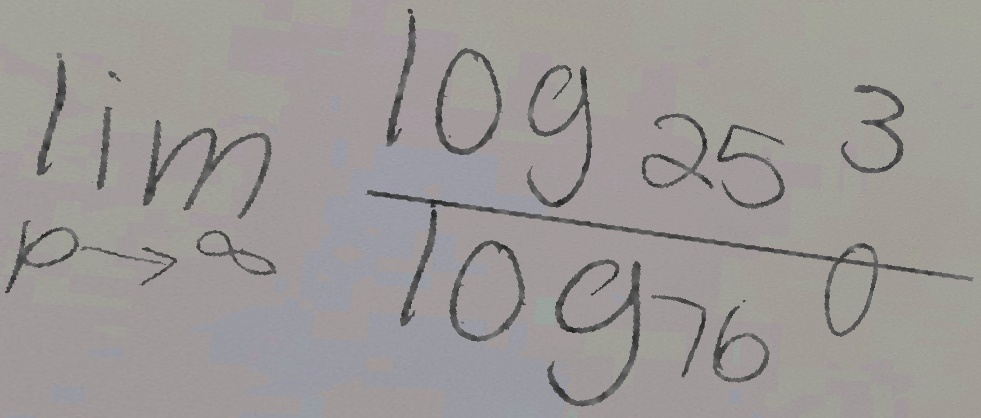 lim p→∞ log₂₅ 3 / log₇₆ 0